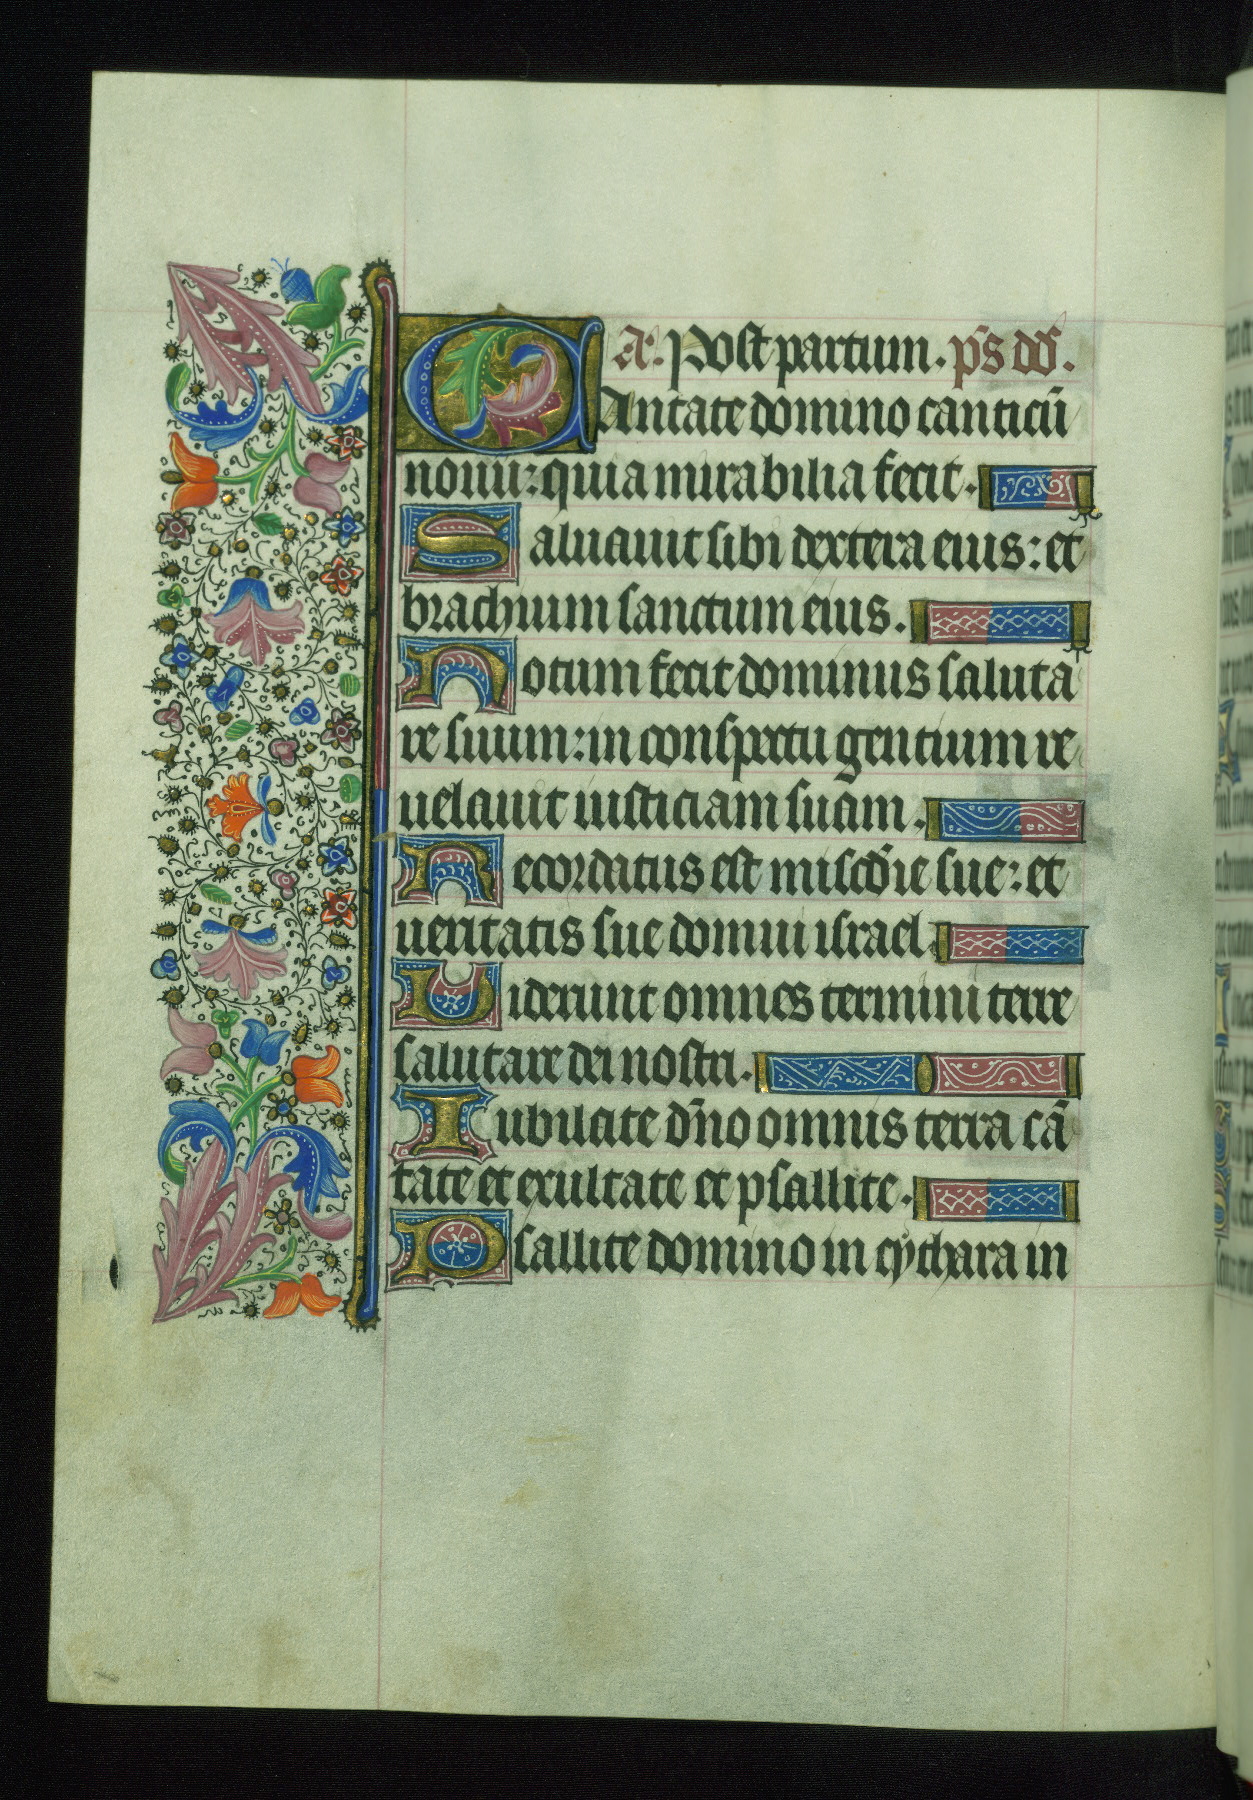 A. Post partum. ps dd.
Cantate domino canticū
nouū: quia mirabilia fecit.
Saluauit sibi dextera eius: et
brachium sanctum eius.
Notum fecit dominus saluta
re suum: in conspectu gentium re
uelauit iusticiam suam.
Recordatus est miscd̄ie sue: et
ueritatis sue domui israel.
Uiderunt omnes termini terre
salutare dei nostri.
Iubilate dn̄o omnis terra cā
tate et exultate et psallite.
Psallite domino in cythara in